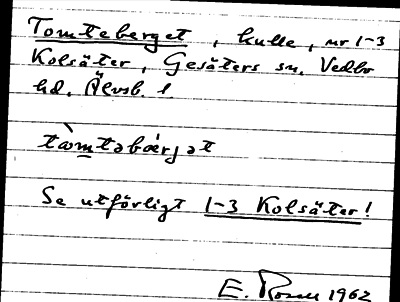 Tomteberget, kulle, nr 1-3
Kolsäter, Gesäters sn. Vedbo
hd. Älvsb. l.
tòmtəbærjət
Se utförligt 1-3 Kolsäter!
E. 1962